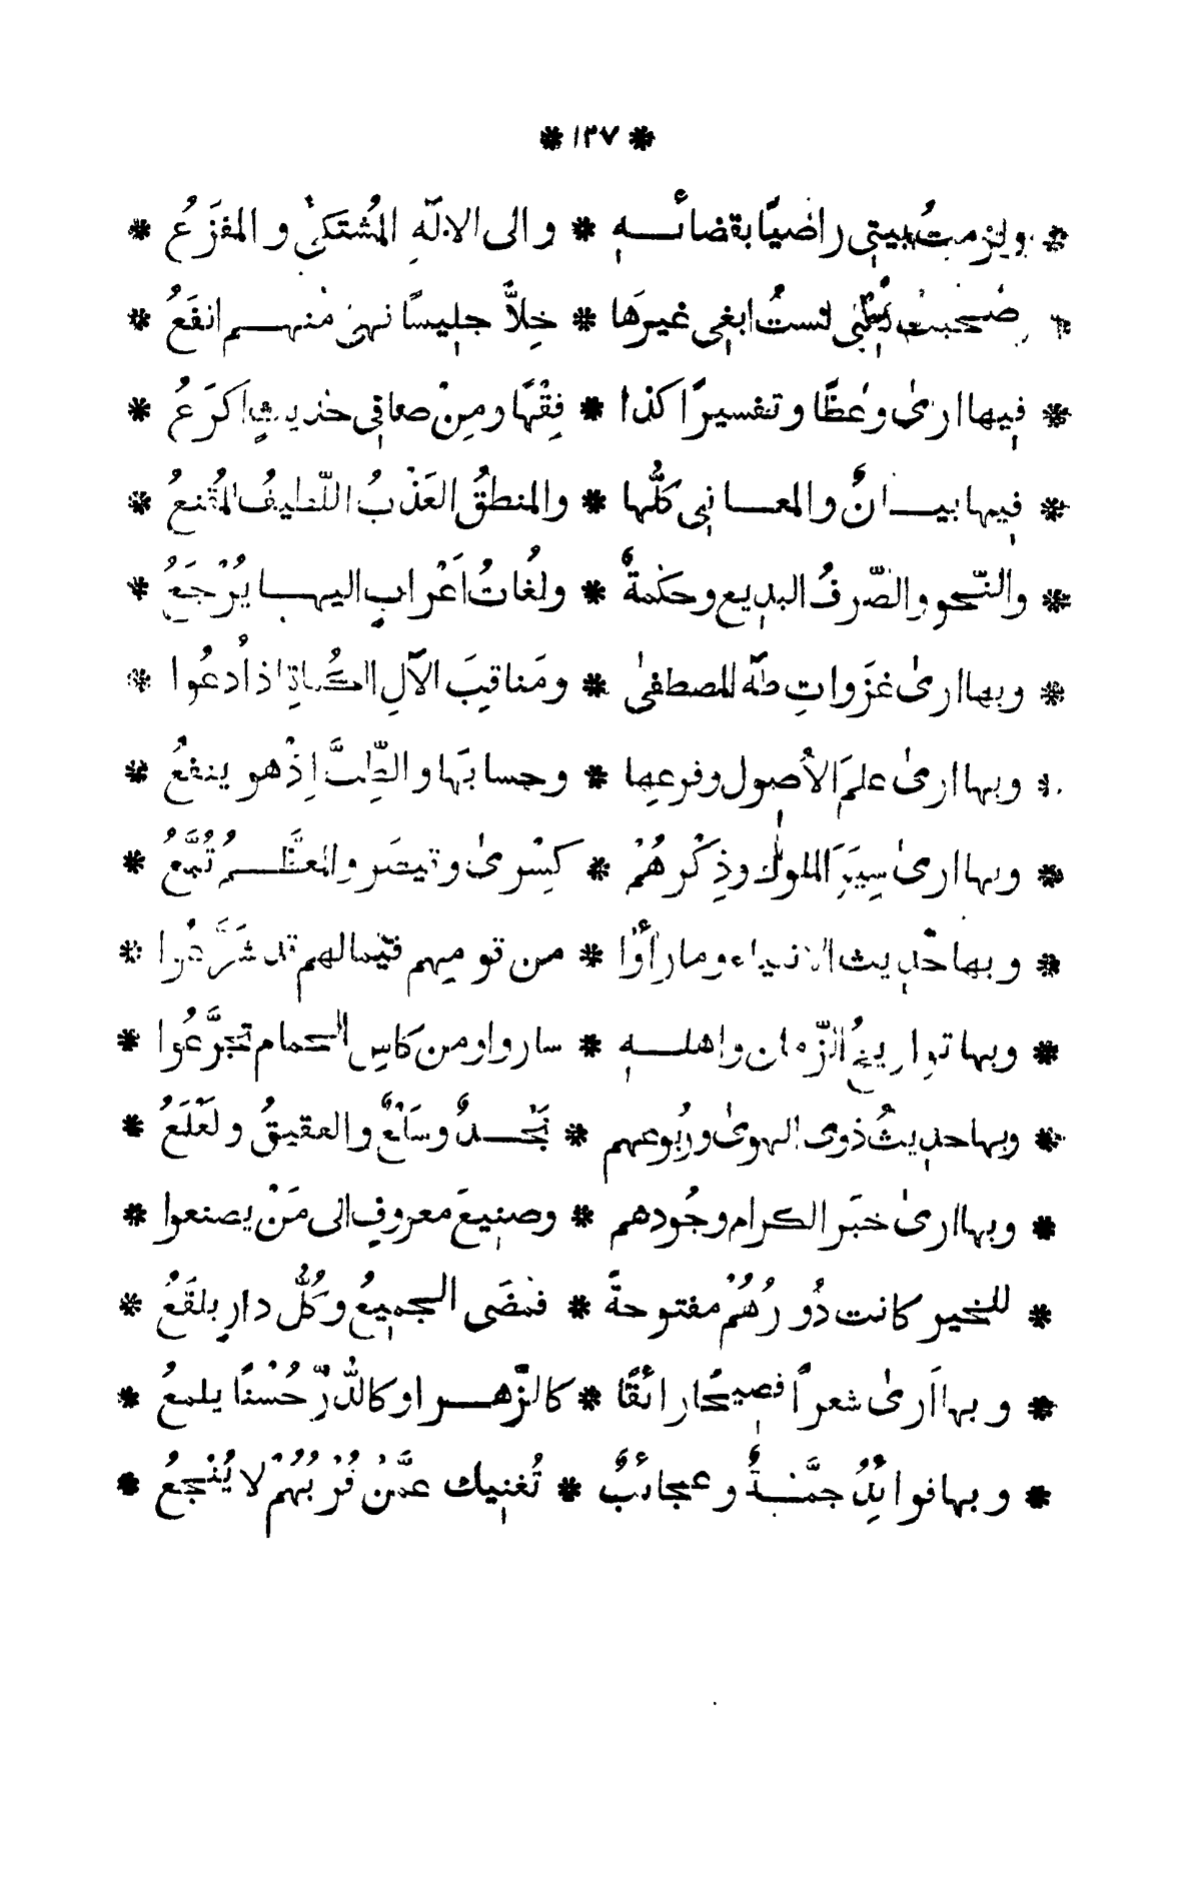 * ١٣٧ *
* ولزمتُ بيتي راضيًا بقضائه * والى الالٰهِ المُشتَكىٰ والمفزَعُ *
* وصحبتُ كتبي لستُ ابغي غيرَها * خِلاًّ جليسًا فهيَ منهم انفَعُ *
* فيها ارىٰ وعظًا وتفسيرًا كذا * فِقْهًا ومِنْ صافي حديثٍ اَكرَعُ *
* فيها بيانٌ والمعاني كلُّها * والمنطقُ العَذْبُ اللّطيفُ المُقنعُ *
* والنّحو والصّرفُ البديع وحكمةٌ * ولُغاتُ اَعْرابٍ اليها يُرْجَعُ *
* وبها ارىٰ غزَواتِ طٰهَ المصطفىٰ * ومَناقِبَ الآلِ الكُماةِ اذا اُدعُوا *
* وبها ارىٰ علمَ الاُصول وفرعِها * وحسابَها والطِّبَّ اِذْ هو ينفعُ *
* وبها ارىٰ سِيَرَ الملوك وذِكْرهُمْ * كِسْرىٰ وقيصَر والمعَظَّمُ تُبَّعُ *
* وبها حديث الانبياء وما رأَوْا * من قومِهم فيما لهم قد شَرَّعُوا *
* وبها تواريخُ الزّمان واهله * ساروا ومن كاسِ الحمام تجرَّعُوا *
* وبها حديثُ ذوى الهوىٰ ورُبُوعهم * نَجْدٌ وسَلْعٌ والعقيقُ ولَعْلَعُ *
* وبها ارىٰ خبَر الكرام وجُودهم * وصنيعَ معروفٍ الى مَنْ يصنعوا *
* للخير كانت دُورُهُمْ مفتوحةً * فمضَى الجميعُ وكُلُّ دارٍ بلقَعُ *
* وبها اَرىٰ شعراً فصيحًا رائقًا * كالزَّهر او كالدُّرّ حُسْنًا يلمعُ *
* وبها فوائدُ جمَّةٌ وعجائبٌ * تُغنيك عمَّنْ قُرْبُهُمْ لا يُنْجعُ *